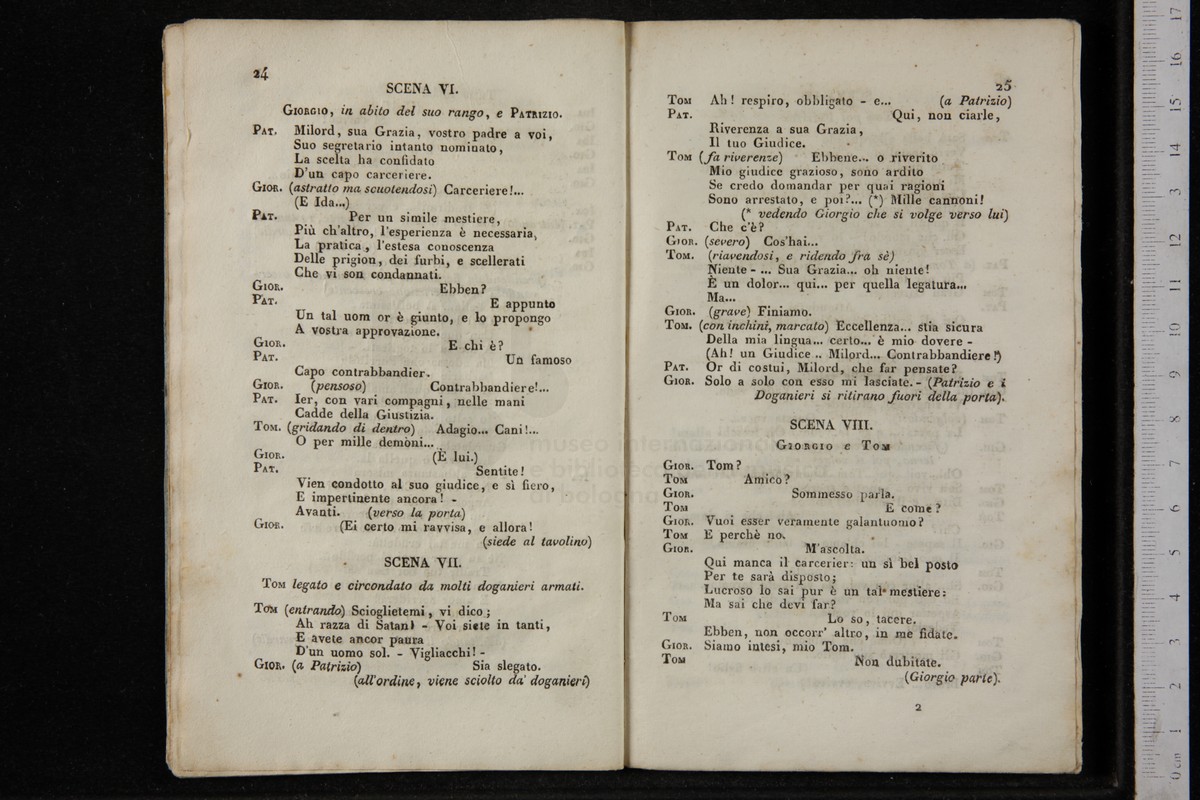 24
SCENA VI.
GIORGIO, in abito del suo rango, e PATRIZIO.
PAT. Milord, sua Grazia, vostro padre a voi,
Suo segretario intanto nominato,
La scelta ha confidato
D'un capo carceriere.
GIOR. (astratto ma scuotendosi) Carceriere!...
(E Ida...)
PAT. Per un simile mestiere,
Più ch'altro, l'esperienza è necessaria,
La pratica, l'estesa conoscenza
Delle prigion, dei furbi, e scellerati
Che vi son condannati.
GIOR. Ebben?
PAT. E appunto
Un tal uom or è giunto, e lo propongo
A vostra approvazione.
GIOR. E chi è?
PAT. Un famoso
Capo contrabbandier.
GIOR. (pensoso) Contrabbandiere!...
PAT. Ier, con vari compagni, nelle mani
Cadde della Giustizia.
TOM. (gridando di dentro) Adagio... Cani!...
O per mille demòni...
GIOR. (È lui.)
PAT. Sentite!
Vien condotto al suo giudice, e sì fiero,
E impertinente ancora! -
Avanti. (verso la porta)
GIOR. (Ei certo mi ravvisa, e allora!
(siede al tavolino)
SCENA VII.
TOM legato e circondato da molti doganieri armati.
TOM (entrando) Scioglietemi, vi dico;
Ah razza di Satan! - Voi siete in tanti,
E avete ancor paura
D'un uomo sol. - Vigliacchi! -
GIOR. (a Patrizio) Sia slegato.
(all'ordine, viene sciolto da' doganieri)
25
TOM Ah! respiro, obbligato - e... (a Patrizio)
PAT. Qui, non ciarle,
Riverenza a sua Grazia,
Il tuo Giudice.
TOM (fa riverenze) Ebbene... o riverito
Mio giudice grazioso, sono ardito
Se credo domandar per quai ragioni
Sono arrestato, e poi?... (*) Mille cannoni!
(* vedendo Giorgio che si volge verso lui)
PAT. Che c'è?
GIOR. (severo) Cos'hai...
TOM. (riavendosi, e ridendo fra sè)
Niente - ... Sua Grazia... oh niente!
È un dolor... qui... per quella legatura...
Ma...
GIOR. (grave) Finiamo.
TOM. (con inchini, marcato) Eccellenza... stia sicura
Della mia lingua... certo... è mio dovere -
(Ah! un Giudice .. Milord... Contrabbandiere!)
PAT. Or di costui, Milord, che far pensate?
GIOR. Solo a solo con esso mi lasciate. - (Patrizio e i
Doganieri si ritirano fuori della porta).
SCENA VIII.
GIORGIO e TOM
GIOR. Tom?
TOM Amico?
GIOR. Sommesso parla.
TOM E come?
GIOR. Vuoi esser veramente galantuomo?
TOM E perchè no.
GIOR. M'ascolta.
Qui manca il carcerier: un sì bel posto
Per te sarà disposto;
Lucroso lo sai pur è un tal mestiere:
Ma sai che devi far?
TOM Lo so, tacere.
Ebben, non occorr' altro, in me fidate.
GIOR. Siamo intesi, mio Tom.
TOM Non dubitate.
(Giorgio parte).
2
museo internazionale
e biblioteca della musica
di bologna
0 cm 1 2 3 4 5 6 7 8 9 10 11 12 13 14 15 16 17